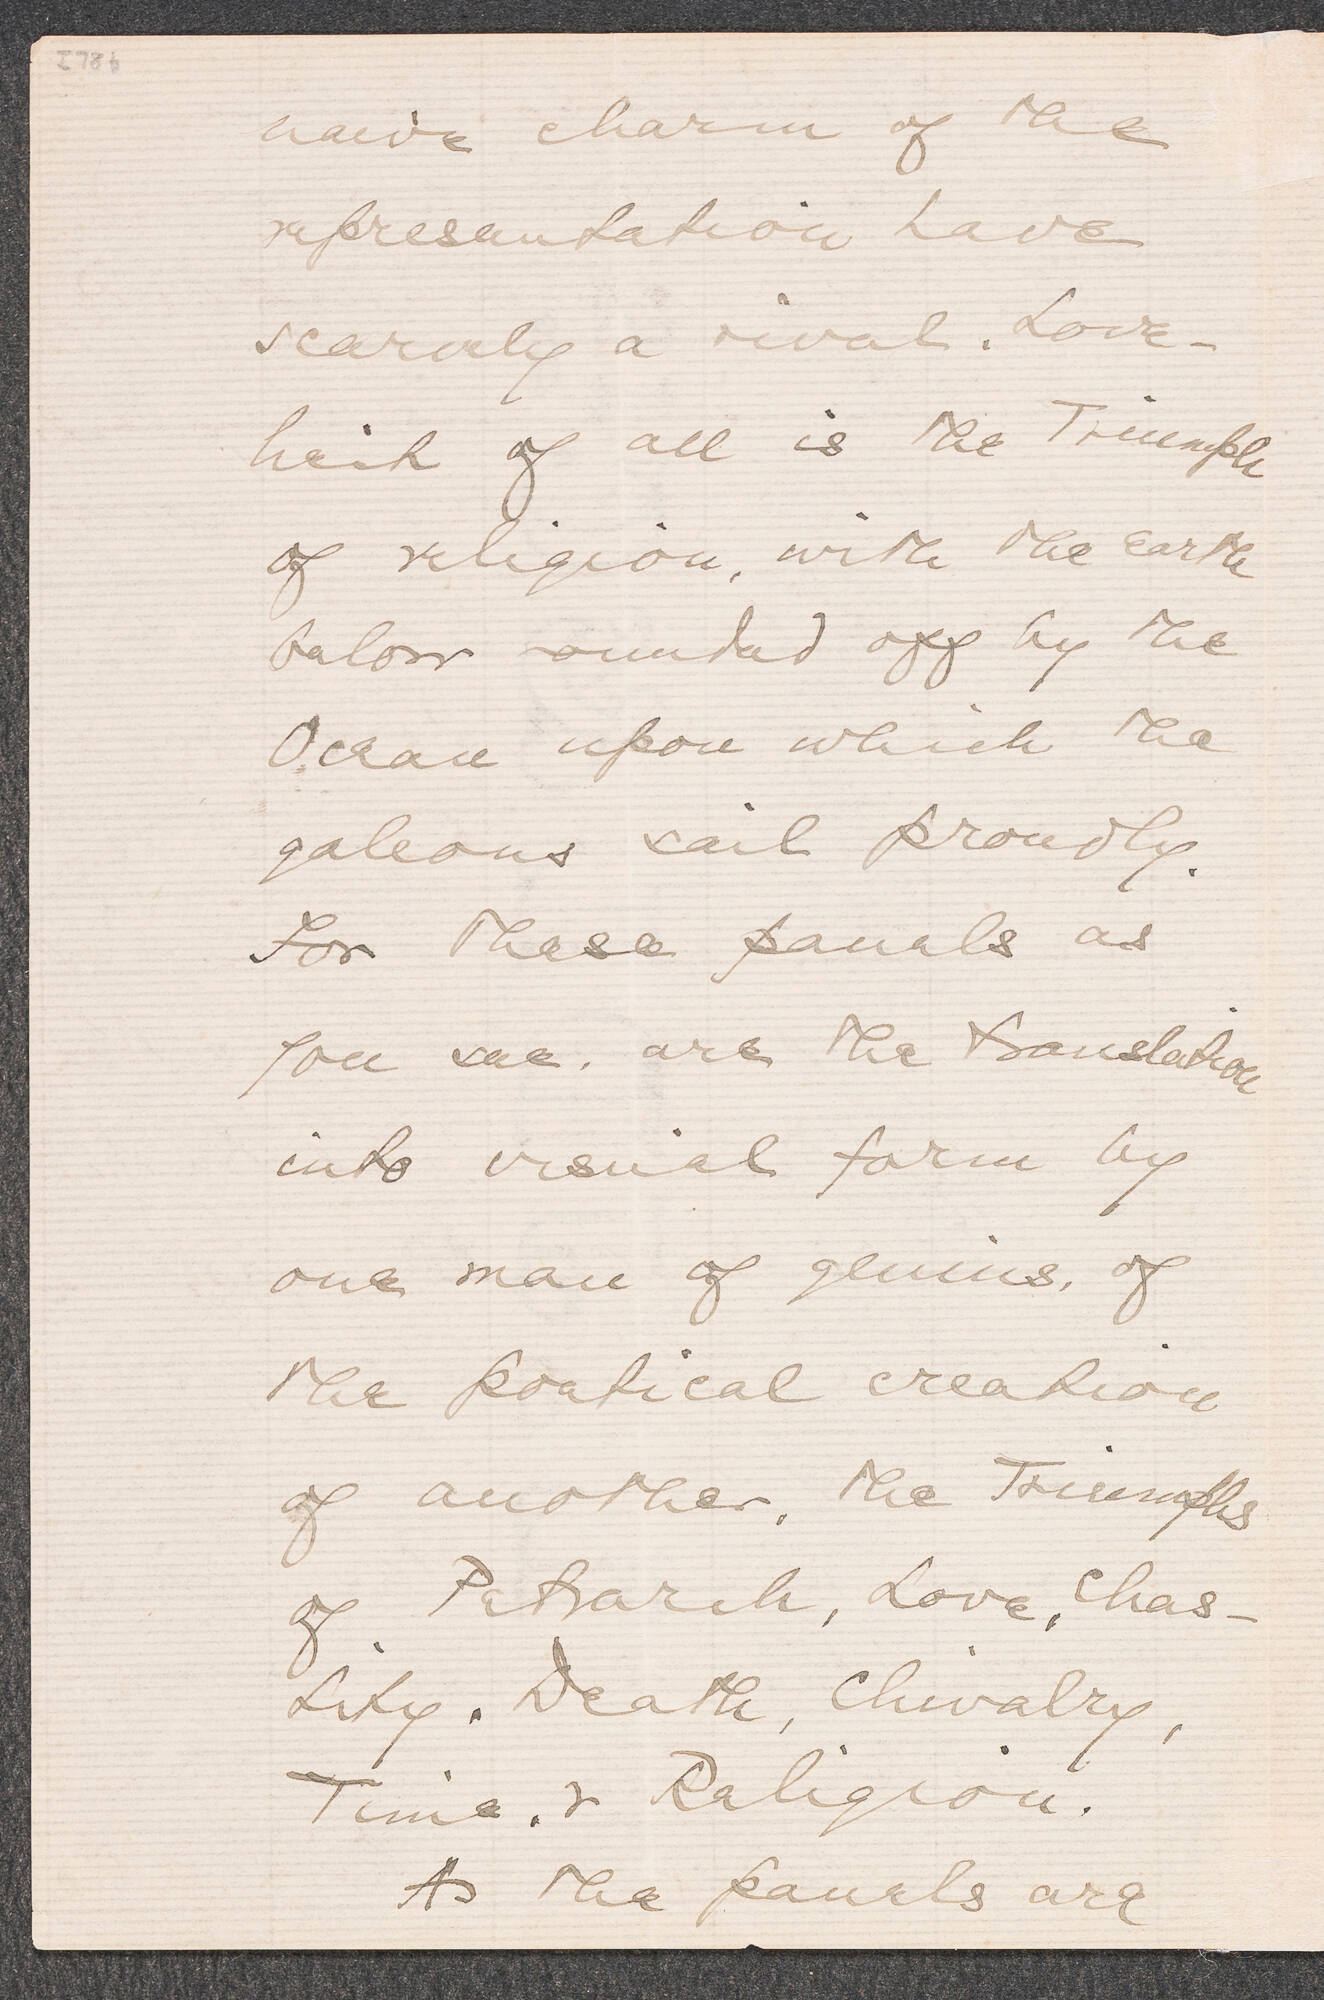 naive charm of the
representation have
scarcely a rival. Love-
liest of all is the Triumph
of religion, with the earth
below rounded off by the
Ocean upon which the
galeons sail proudly.
For these panels as
you see, are the translation
into visual form by
one man of genius, of
the poetical creation
of another, the Triumphs
of Petrarch, Love, Chas-
tity, Death, Chivalry,
Time, & Religion.
As the panels are